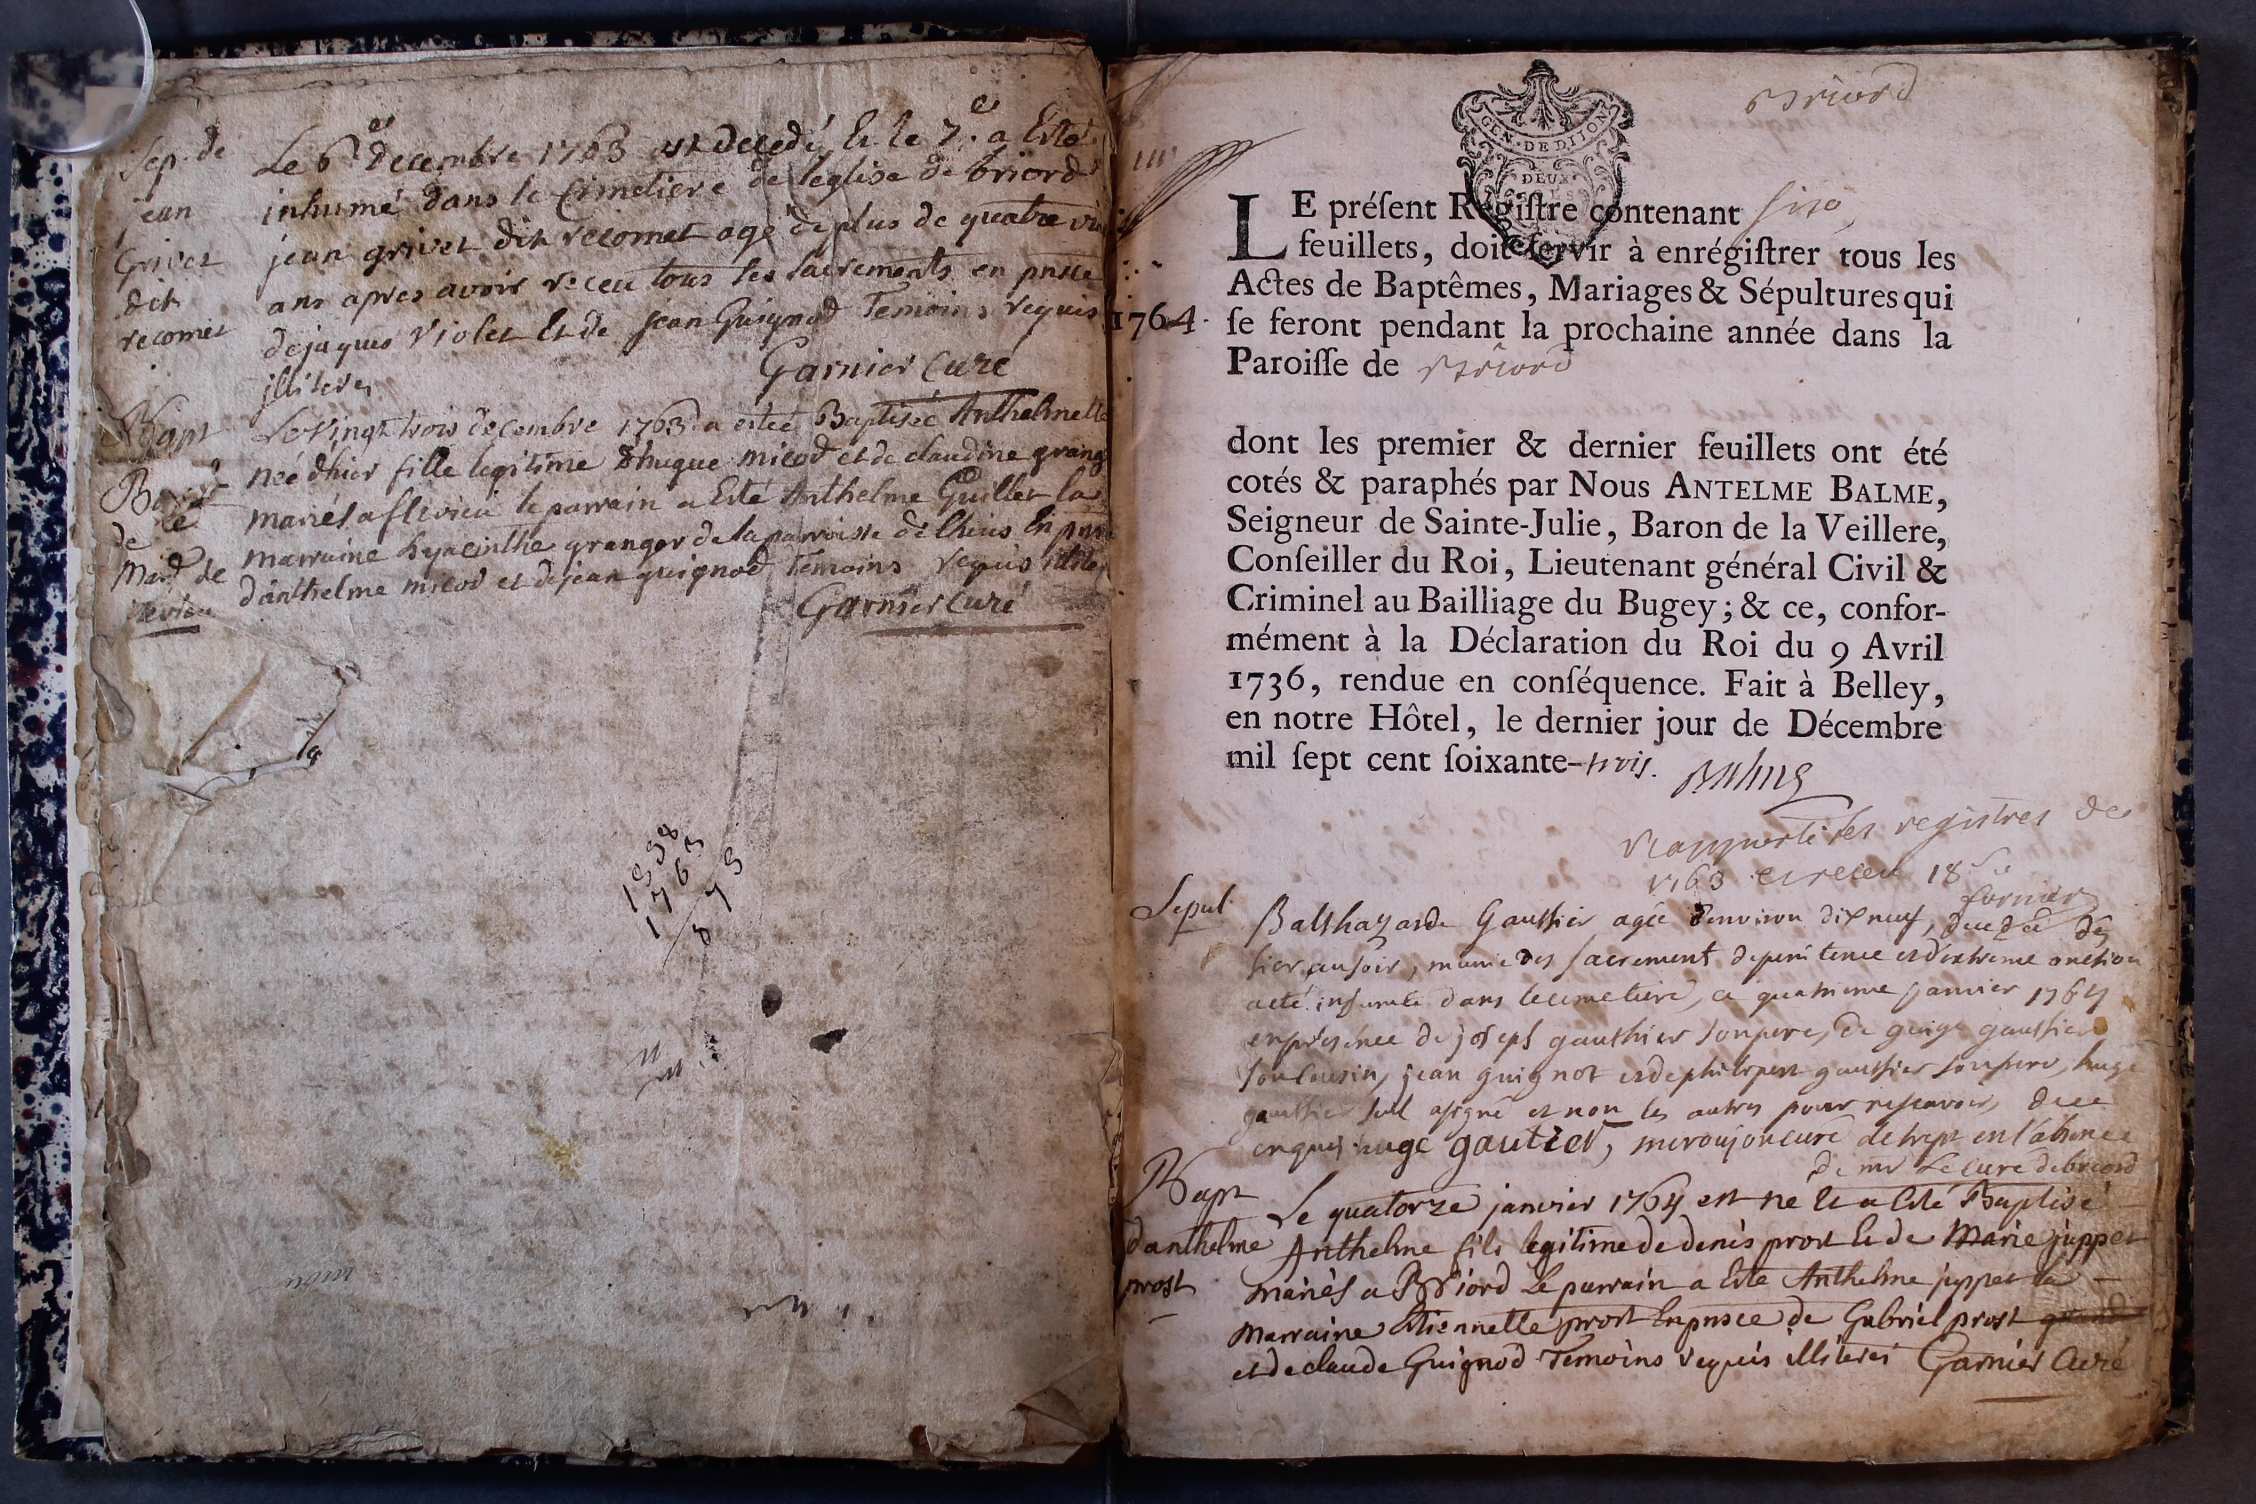 Sep. de
jean
Grivet
dit
recomet
Le 6e decembre 1763 est decedé Et le 7e a Esté
inhumé dans le Cimetiere de leglise de briord
jean grivet dit recomet agé de plus de quatre vi
ans apres avoir receu tous les sacrements en pnsce
de jaques Violet Et de jean Guignod Temoins requis
jlliteres
Garnier Curé
Bapt
de
Mard de
flevieu
Le vingt trois decembre 1763 a estée Baptisée Anthelmette
née d'hier fille legitime d'hugue micod et de claudine grang
mariés a flevieu le parrain a Esté Anthelme Guillet la
marraine hyacinthe granger de la parroisse de lhuis En pnsce
d'anthelme micod et de jean guignod Temoins requis illite
Garnier Curé
1763
Briord
GEN. DE DIJON
DEUX
LE préſent Regiſtre contenant six
feuillets, doit ſervir à enrégiſtrer tous les
Actes de Baptêmes, Mariages & Sépultures qui
1764. ſe feront pendant la prochaine année dans la
Paroiſſe de Briord
dont les premier & dernier feuillets ont été
cotés & paraphés par Nous ANTELME BALME,
Seigneur de Sainte-Julie, Baron de la Veillere,
Conſeiller du Roi, Lieutenant général Civil &
Criminel au Bailliage du Bugey; & ce, confor-
mément à la Déclaration du Roi du 9 Avril
1736, rendue en conſéquence. Fait à Belley,
en notre Hôtel, le dernier jour de Décembre
mil ſept cent ſoixante-trois.
Balme
rapporté les registres de
1763 et receu 18 s.
Sepul.
Balthazarde Gauthier agée d'environ dix neuf, decedée des
hier au soir, munie des sacrement de penitence et d'extreme onction
a eté inhumée dans le cimetiere, ce quatrieme janvier 1764
en présence de joseph gauthier son pere, de guige gauthier
son cousin, jean guignot et de philipert gauthier son frere, huge
gauthier seul a signé et non les autres pour ne sçavoir, de ce
enquis huge gautier, curé de en l'absence
de mr Le curé de briord
Bapt
d'anthelme
prost
Le quatorze janvier 1764 est né Et a Esté Baptisé
Anthelme fils legitime de denis prost Et de Marie juppet
mariés a Briord Le parrain a Esté Anthelme juppet la
marraine Etiennette prost En pnsce de Gabriel prost
et de claude Guignod Temoins requis illiteres Garnier Curé